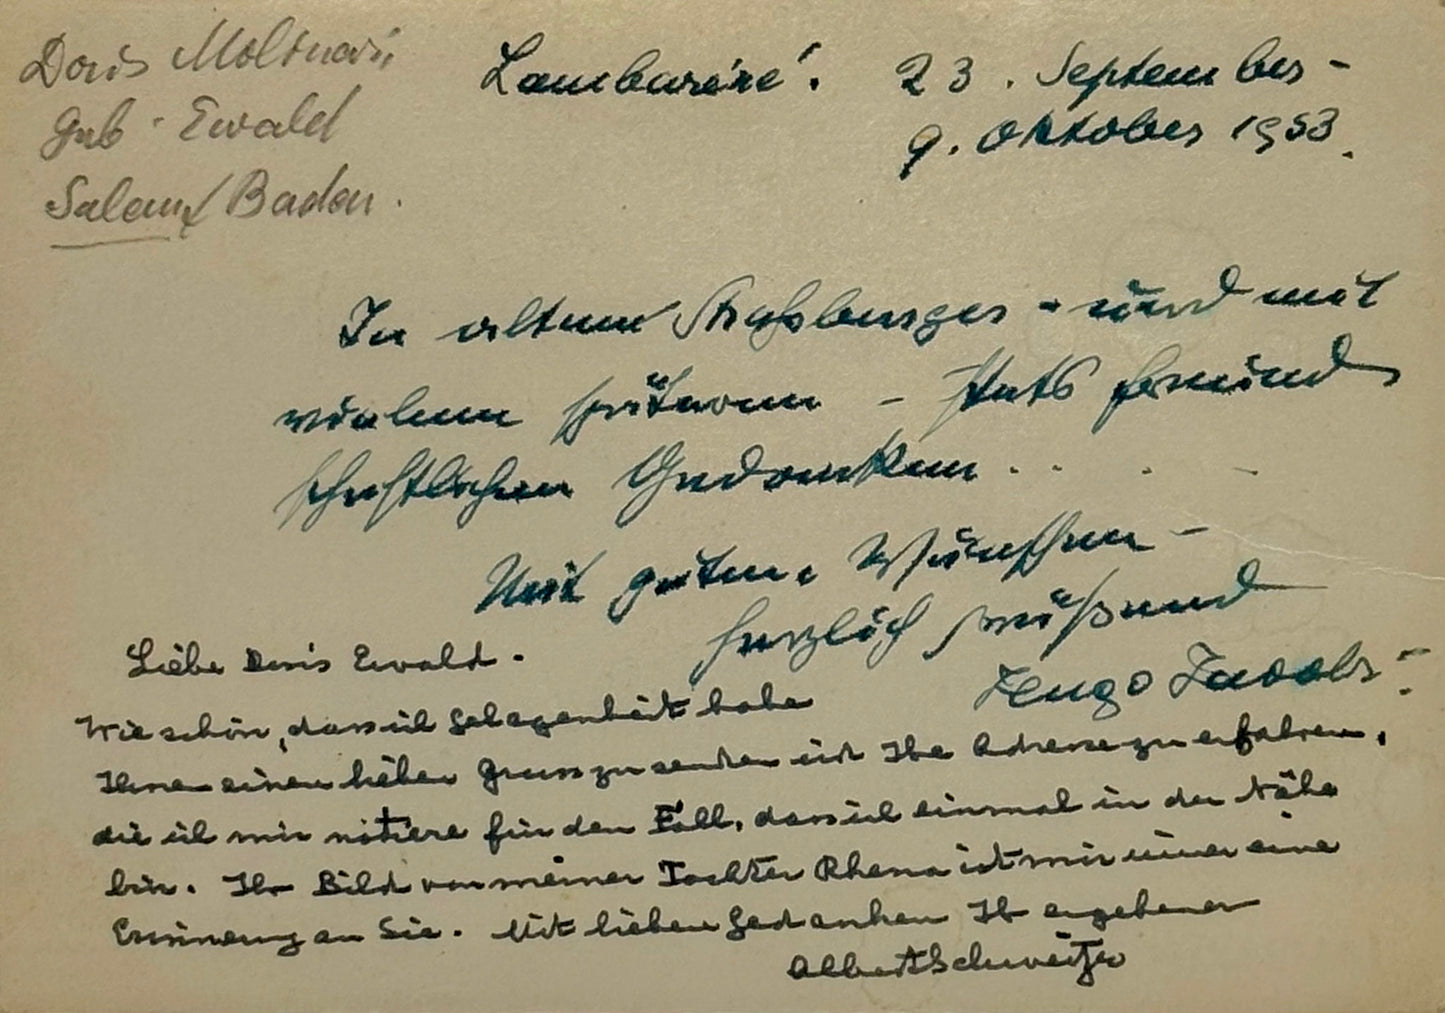 Doris Molinari
geb. Ewald
Salem / Baden.
Lambaréné. 23. September -
9. Oktober 1953.
In altem Straßburger - und mit
vielem späteren - stets freund
schaftlichem Gedenken . . . -
Mit guten Wünschen -
herzlich grüßend
Hugo Jacobi.
Liebe Doris Ewald.
Wie schön, dass ich Gelegenheit habe
Ihnen einen lieben Gruss zu senden und Ihre Adresse zu erfahren,
die ich mir notiere für den Fall, dass ich einmal in der Nähe
bin. Ihr Bild von meiner Tochter Rhena ist mir immer eine
Erinnerung an Sie. Mit lieben Gedanken Ihr ergebener
Albert Schweitzer